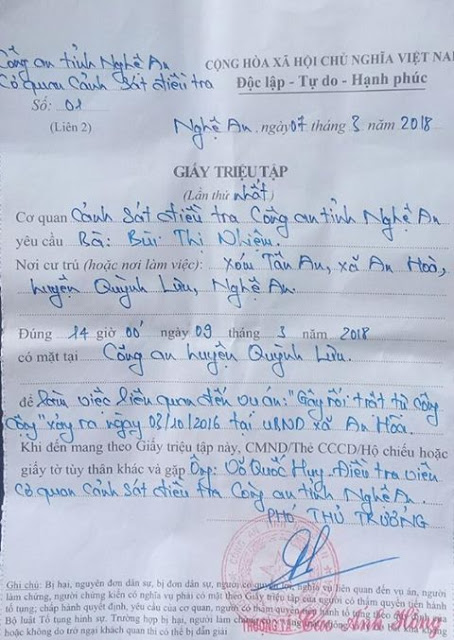 Công an tỉnh Nghệ An
CỘNG HÒA XÃ HỘI CHỦ NGHĨA VIỆT NA
Cơ quan Cảnh sát điều tra
Độc lập - Tự do - Hạnh phúc
Số: 01
(Liên 2)
Nghệ An, ngày 07 tháng 3 năm 2018
GIẤY TRIỆU TẬP
(Lần thứ nhất)
Cơ quan Cảnh sát điều tra Công an tỉnh Nghệ An
yêu cầu Bà: Bùi Thị Nhiệm.
Nơi cư trú (hoặc nơi làm việc): xóm Tân An, xã An Hoà,
huyện Quỳnh Lưu, Nghệ An.
Đúng 14 giờ 00' ngày 09 tháng 3 năm 2018
có mặt tại Công an huyện Quỳnh Lưu.
để làm việc liên quan đến vụ án: "Gây rối trật tự công
cộng" xảy ra ngày 03/10/2016 tại UBND xã An Hoà.
Khi đến mang theo Giấy triệu tập này, CMND/Thẻ CCCD/Hộ chiếu hoặc
giấy tờ tùy thân khác và gặp Ông: Võ Quốc Huy, Điều tra viên
Cơ quan Cảnh sát điều tra Công an tỉnh Nghệ An.
PHÓ THỦ TRƯỞNG
Ghi chú: Bị hại, nguyên đơn dân sự, bị đơn dân sự, người có quyền lợi, nghĩa vụ liên quan đến vụ án, người
làm chứng, người chứng kiến có nghĩa vụ phải có mặt theo Giấy triệu tập của người có thẩm quyền tiến hành
tố tụng; chấp hành quyết định, yêu cầu của cơ quan, người có thẩm quyền tiến hành tố tụng theo
Bộ luật Tố tụng hình sự. Trường hợp bị hại, người làm chứng
hoặc không do trở ngại khách quan thì có thể bị dẫn giải
THƯỢNG TÁ Hồng